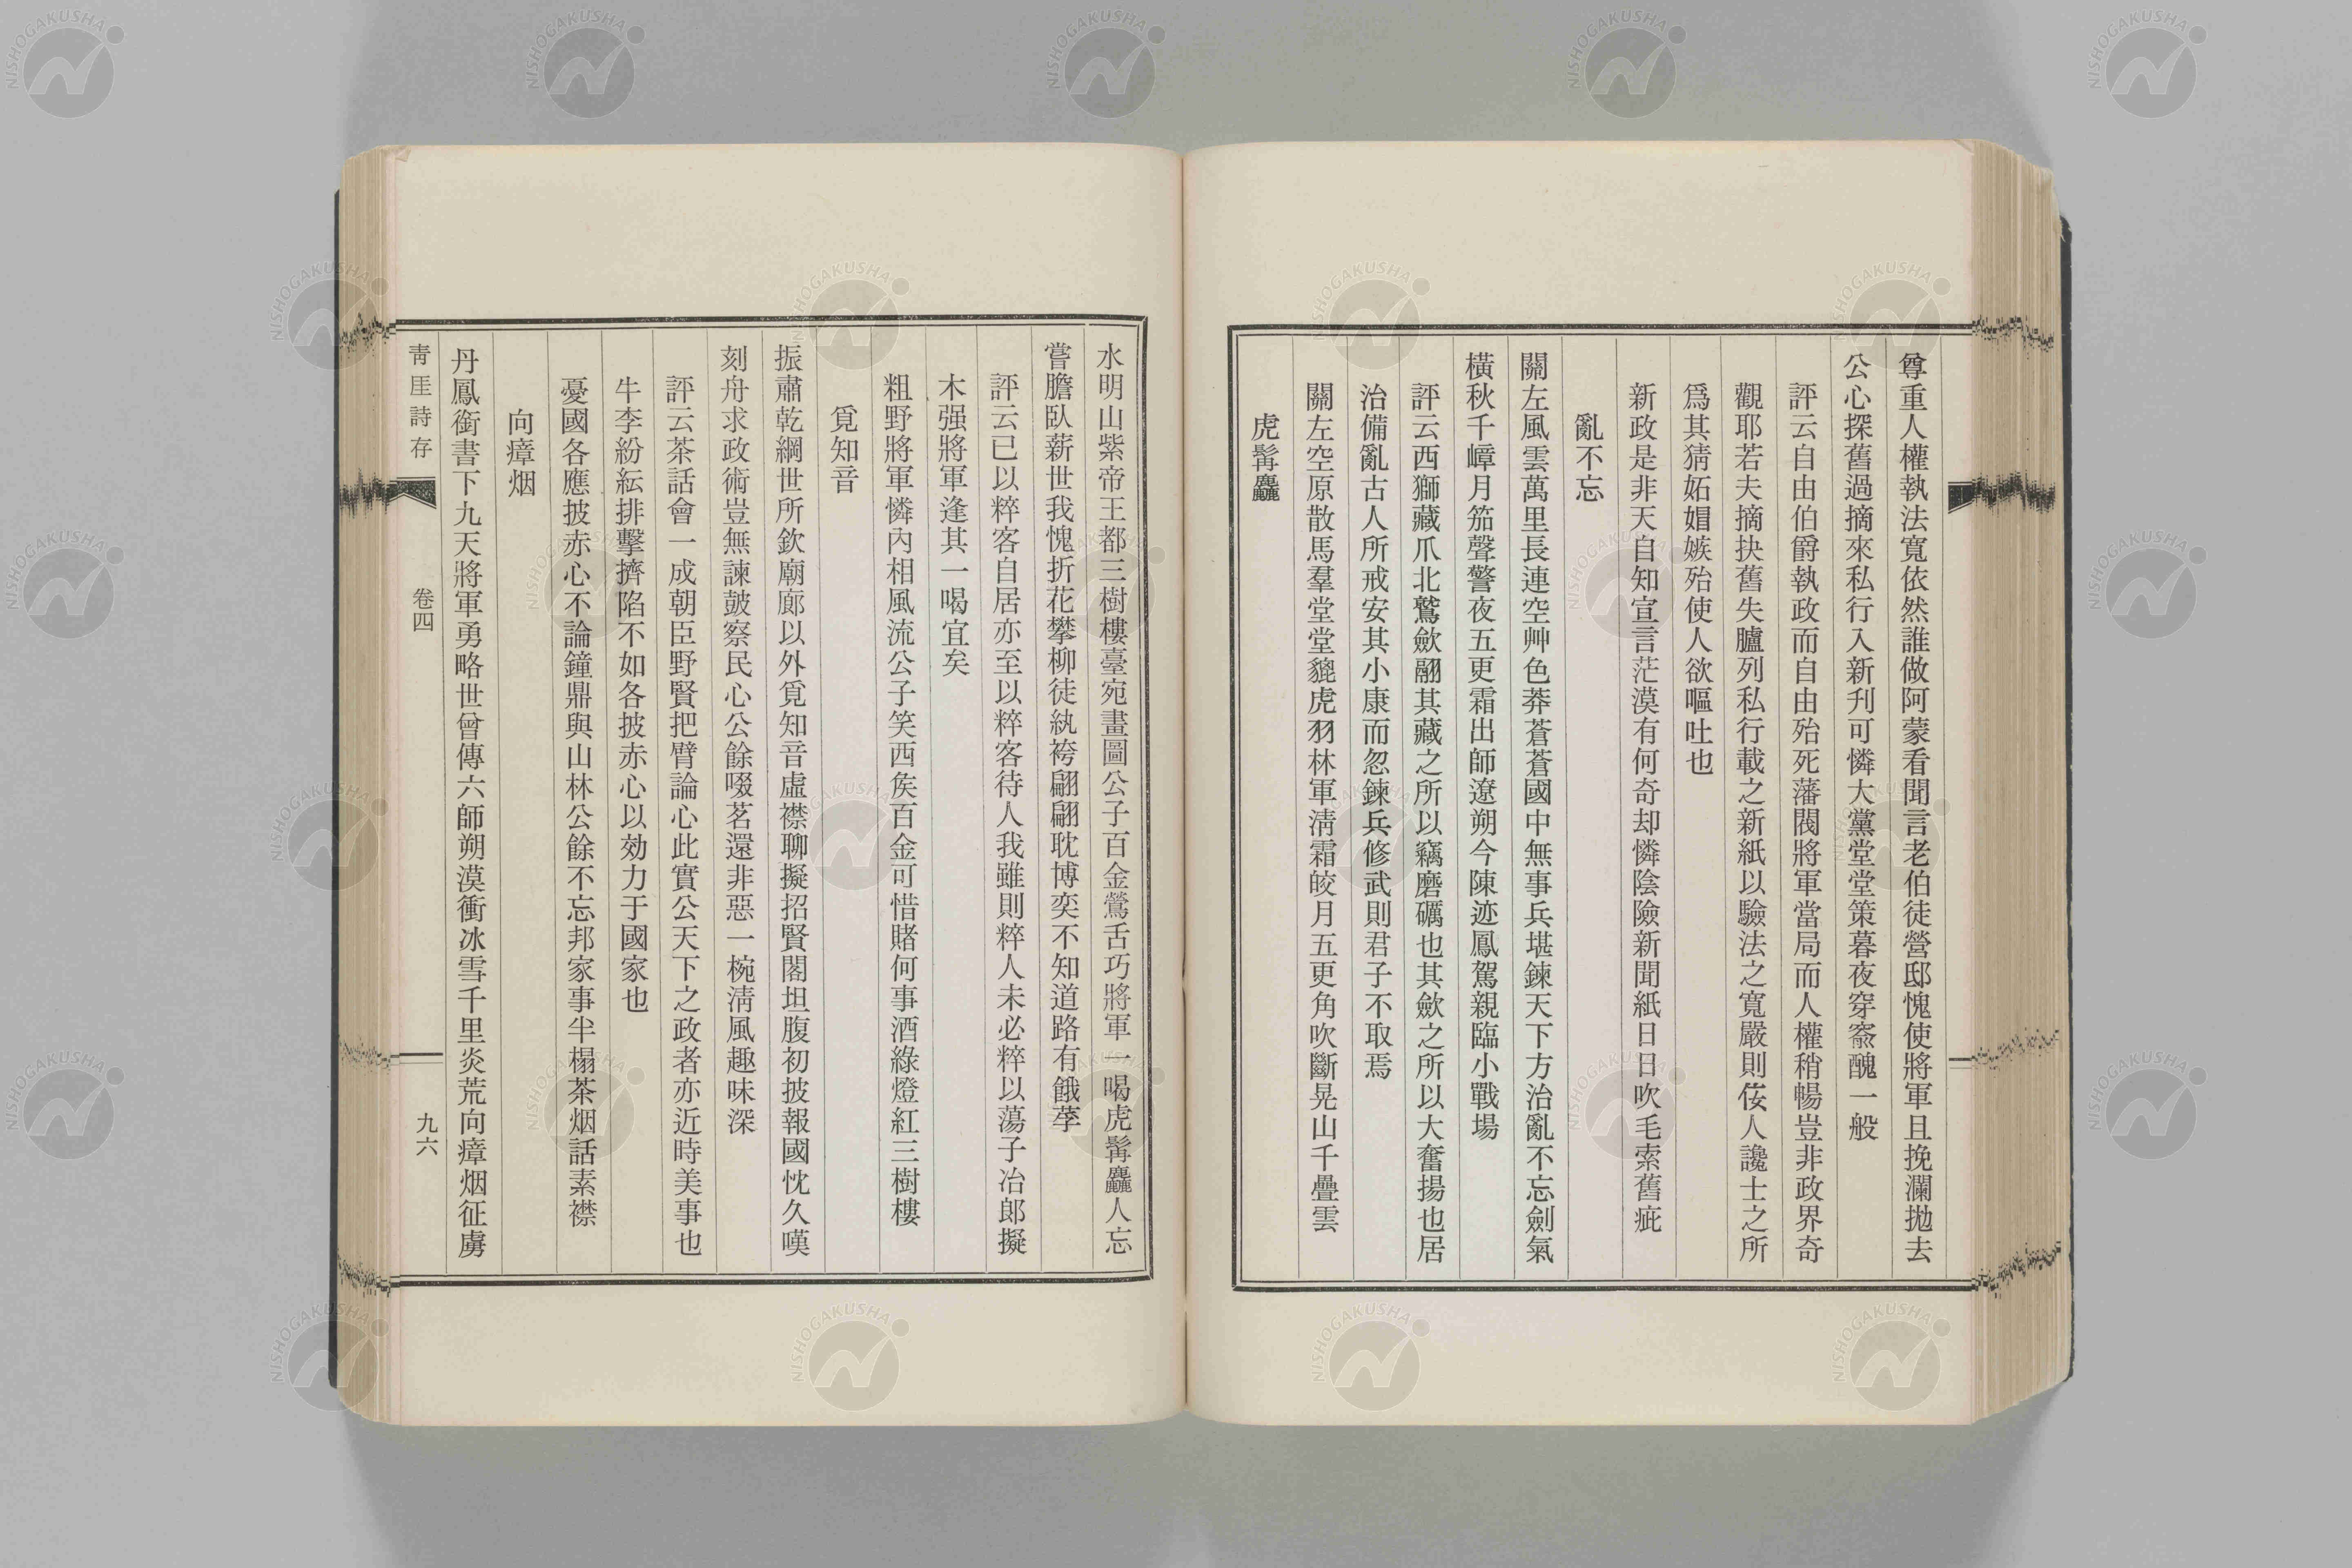 尊重人權執法寬依然誰做阿蒙看聞言老伯徒營邸愧使將軍且挽瀾拋去
公心探舊過摘來私行入新刋可憐大黨堂堂策暮夜穿窬醜一般
評云自由伯爵執政而自由殆死藩閥將軍當局而人權稍暢豈非政界奇
觀耶若夫摘抉舊失臚列私行載之新紙以驗法之寬嚴則佞人讒士之所
爲其猜妬媢嫉殆使人欲嘔吐也
新政是非天自知宣言茫漠有何奇却憐陰險新聞紙日日吹毛索舊疵
亂不忘
關左風雲萬里長連空艸色莽蒼蒼國中無事兵堪鍊天下方治亂不忘劍氣
橫秋千嶂月笳聲警夜五更霜出師遼朔今陳迹鳳駕親臨小戰場
評云西獅藏爪北鷲歛翮其藏之所以竊磨礪也其歛之所以大奮揚也居
治備亂古人所戒安其小康而忽鍊兵修武則君子不取焉
關左空原散馬羣堂堂貔虎羽林軍淸霜皎月五更角吹斷晃山千疊雲
虎髯麤
水明山紫帝王都三樹樓臺宛畫圖公子百金鶯舌巧將軍一喝虎髯麤人忘
嘗膽臥薪世我愧折花攀柳徒紈袴翩翩耽博奕不知道路有餓莩
評云已以粹客自居亦至以粹客待人我雖則粹人未必粹以蕩子冶郎擬
木强將軍逢其一喝宜矣
粗野將軍憐內相風流公子笑西矦百金可惜賭何事酒綠燈紅三樹樓
覓知音
振肅乾綱世所欽廟廊以外覓知音虛襟聊擬招賢閣坦腹初披報國忱久嘆
刻舟求政術豈無諫鼓察民心公餘啜茗還非惡一椀淸風趣味深
評云茶話會一成朝臣野賢把臂論心此實公天下之政者亦近時美事也
牛李紛紜排擊擠陷不如各披赤心以効力于國家也
憂國各應披赤心不論鐘鼎與山林公餘不忘邦家事半榻茶烟話素襟
向瘴烟
丹鳳銜書下九天將軍勇略世曾傳六師朔漠衝冰雪千里炎荒向瘴烟征虜
靑厓詩存
卷四
九六
NISHOGAKUSHA